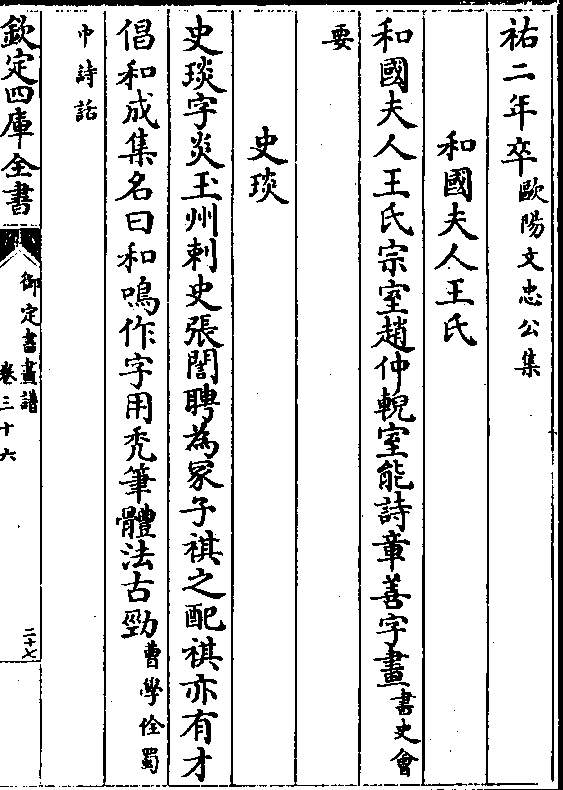 祐二年卒歐陽文忠公集
和國夫人王氏
和國夫人王氏宗室趙仲輗室能詩章善字畫書史會
要
史琰
史琰字炎玉州刺史張誾聘為冢子祺之配祺亦有才
倡和成集名曰和鳴作字用禿筆體法古勁曹學佺蜀
中詩話
欽定四庫全書
御定書畫譜
卷三十六
二十七